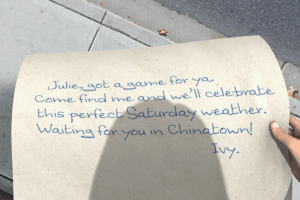 Julie, got a game for ya.
Come find me and we'll celebrate
this perfect Saturday weather.
Waiting for you in Chinatown!
Ivy.